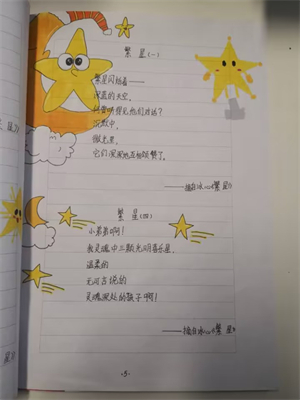 繁星(一)
繁星闪烁着——
深蓝的天空,
何曾听得见他们对话?
沉默中,
微光里,
它们深深地互相颂赞了。
——摘自冰心《繁星》
繁星(四)
小弟弟啊!
我灵魂中三颗光明喜乐星,
温柔的
无可言说的
灵魂深处的孩子啊!
——摘自冰心《繁星》
-5-